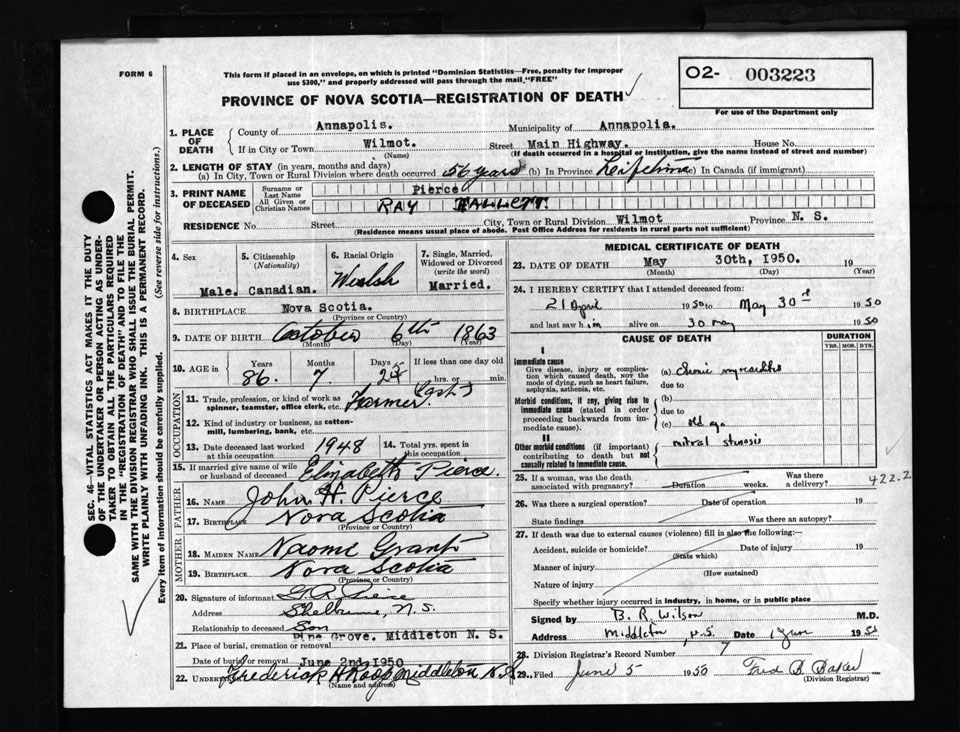 FORM 6
This form if placed in an envelope, on which is printed "Dominion Statistics—Free, penalty for improper
use $300," and properly addressed will pass through the mail "FREE"
O2- 003223
PROVINCE OF NOVA SCOTIA—REGISTRATION OF DEATH
For use of the Department only
1. PLACE OF DEATH
County of Annapolis. Municipality of Annapolis.
If in City or Town Wilmot. Street Main Highway. House No.
(Name) (If death occurred in a hospital or institution, give the name instead of street and number)
2. LENGTH OF STAY (in years, months and days)
(a) In City, Town or Rural Division where death occurred 56 years (b) In Province Lifetime (c) In Canada (if immigrant)
3. PRINT NAME OF DECEASED
Surname or Last Name Pierce
All Given or Christian Names RAY
RESIDENCE No. Street City, Town or Rural Division Wilmot Province N. S.
(Residence means usual place of abode. Post Office Address for residents in rural parts not sufficient)
4. Sex Male.
5. Citizenship (Nationality) Canadian.
6. Racial Origin Welsh
7. Single, Married, Widowed or Divorced (write the word) Married.
8. BIRTHPLACE Nova Scotia.
(Province or Country)
9. DATE OF BIRTH October 6th 1863
(Month) (Day) (Year)
10. AGE in Years 86. Months 7. Days 24 If less than one day old
hrs. or min.
OCCUPATION
11. Trade, profession, or kind of work as
spinner, teamster, office clerk, etc. Farmer
12. Kind of industry or business, as cotton-
mill, lumbering, bank, etc.
13. Date deceased last worked at this occupation 1948 14. Total yrs. spent in this occupation
15. If married give name of wife or husband of deceased Elizabeth Pierce.
FATHER
16. Name John H. Pierce
17. Birthplace Nova Scotia
(Province or Country)
MOTHER
18. Maiden Name Naomi Grant
19. Birthplace Nova Scotia
(Province or Country)
20. Signature of informant G. R. Pierce
Address Shelburne, N. S.
Relationship to deceased Son
21. Place of burial, cremation or removal Pine Grove. Middleton N. S.
Date of burial or removal June 2nd 1950
22. Undertaker Frederick H Roop Middleton N. S
(Name and address)
MEDICAL CERTIFICATE OF DEATH
23. DATE OF DEATH May 30th, 1950. 19
(Month) (Day) (Year)
24. I HEREBY CERTIFY that I attended deceased from:
21 April 1950 to May 30th 1950
and last saw him alive on 30 May 1950
CAUSE OF DEATH DURATION
YRS. MOS. DYS.
I
Immediate cause
Give disease, injury or complica-
tion which caused death, not the
mode of dying, such as heart failure,
asphyxia, asthenia, etc.
(a) Chronic myocarditis
due to
Morbid conditions, if any, giving rise to
immediate cause (stated in order
proceeding backwards from im-
mediate cause).
(b)
due to
(c) old age
II
Other morbid conditions (if important)
contributing to death but not
causally related to immediate cause.
mitral stenosis
25. If a woman, was the death associated with pregnancy? Duration weeks. Was there a delivery?
422.2
26. Was there a surgical operation? Date of operation 19
State findings Was there an autopsy?
27. If death was due to external causes (violence) fill in also the following:—
Accident, suicide or homicide? Date of injury 19
(State which)
Manner of injury
(How sustained)
Nature of injury
Specify whether injury occurred in industry, in home, or in public place
Signed by B. R. Wilson M.D.
Address Middleton, N.S. Date 1 June 1950
28. Division Registrar's Record Number 7
29. Filed June 5 1950
(Division Registrar)
SEC. 46—VITAL STATISTICS ACT MAKES IT THE DUTY
OF THE UNDERTAKER OR PERSON ACTING AS UNDER-
TAKER TO OBTAIN ALL THE PARTICULARS REQUIRED
IN THE "REGISTRATION OF DEATH" AND TO FILE THE
SAME WITH THE DIVISION REGISTRAR WHO SHALL ISSUE THE BURIAL PERMIT.
WRITE PLAINLY WITH UNFADING INK. THIS IS A PERMANENT RECORD.
Every item of information should be carefully supplied. (See reverse side for instructions.)